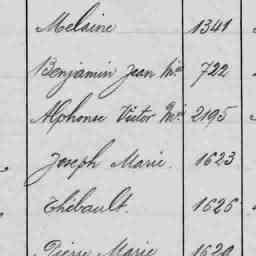 Melaine 1341
Benjamin Jean Mie 722
Alphonse Victor Mie 2195
Joseph Marie. 1623
Thébault. 1626
Pierre Marie 1620